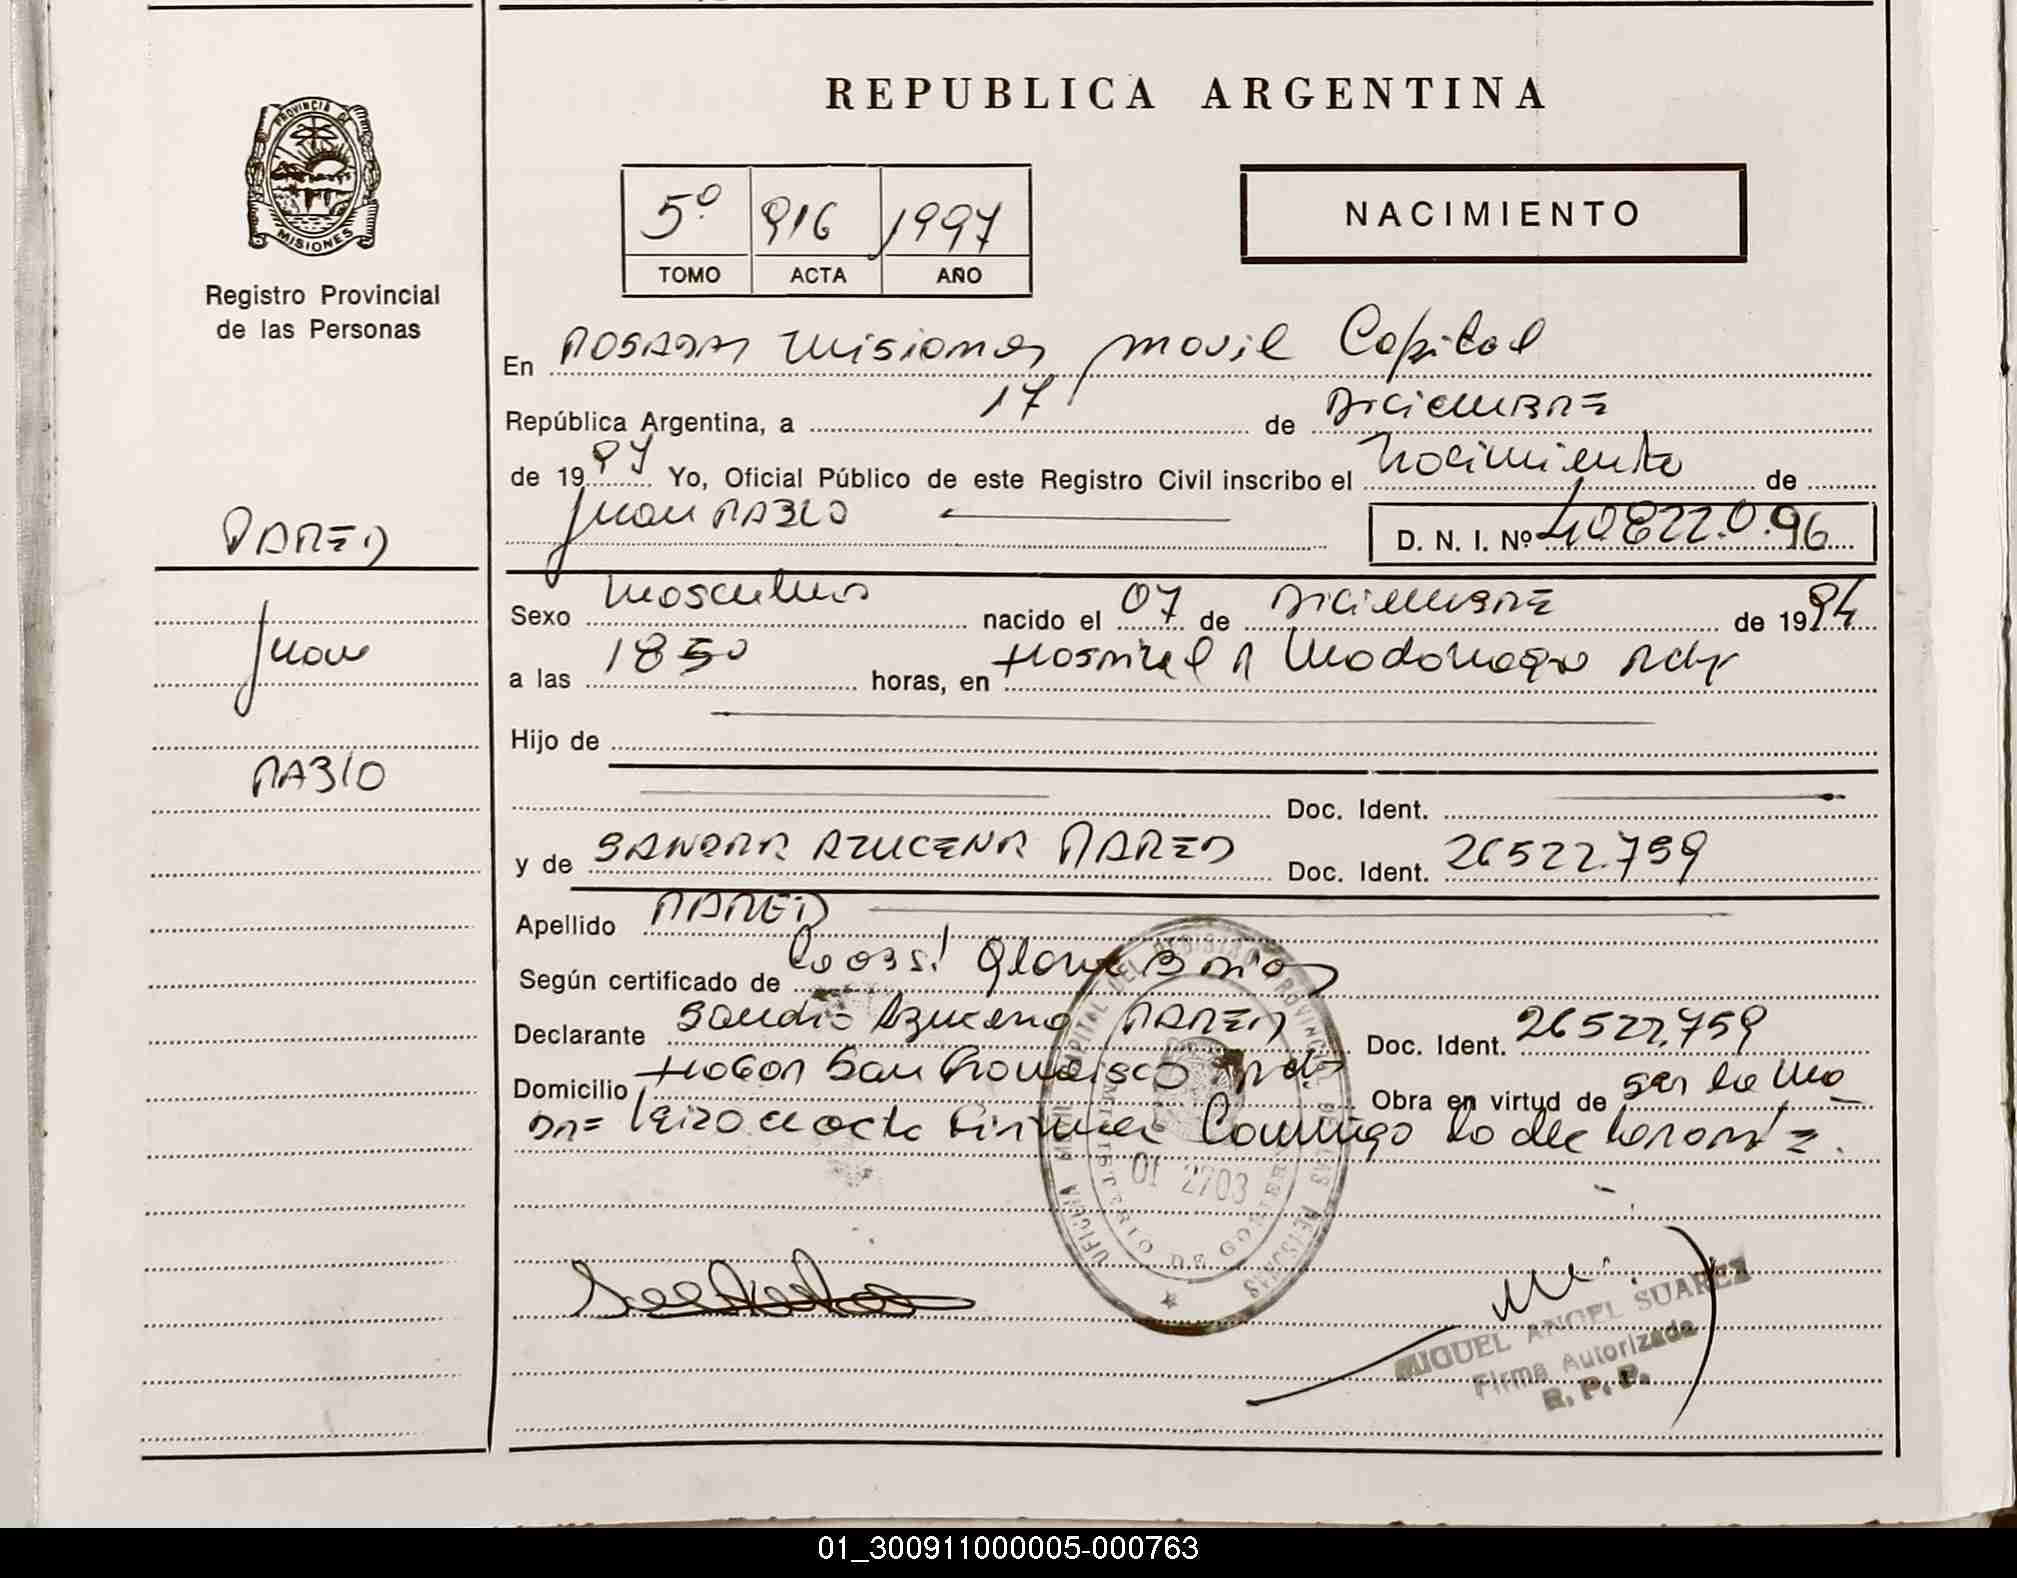 REPUBLICA ARGENTINA
PROVINCIA DE MISIONES
Registro Provincial
de las Personas
5º 916 1997
TOMO ACTA AÑO
NACIMIENTO
En POSADAS Misiones movil Capital
República Argentina, a 17 de DICIEMBRE
de 1997 Yo, Oficial Público de este Registro Civil inscribo el Nacimiento de
Juan PABLO
D. N. I. Nº 40822.096
PARED
Juan
PABLO
Sexo Masculino nacido el 07 de DICIEMBRE de 1994
a las 1850 horas, en Hospital R Madariaga Pdas
Hijo de
Doc. Ident.
y de SANDRA AZUCENA PARED Doc. Ident. 26522.759
Apellido PARED
Según certificado de
Declarante Sandra Azucena PARED Doc. Ident. 26522.759
Domicilio Hogar San Francisco Pdas Obra en virtud de ser la ma
DRE Leido el acta Firma Conmigo la declarante.
OFICINA MOVIL CAPITAL DEL REGISTRO PROVINCIAL DE LAS PERSONAS
MINISTERIO DE GOBIERNO
01 2703
MIGUEL ANGEL SUAREZ
Firma Autorizada
R. P. P.
01_300911000005-000763